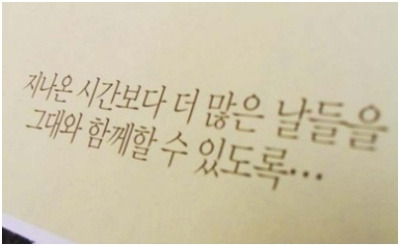 지나온 시간보다 더 많은 날들을
그대와 함께할 수 있도록…